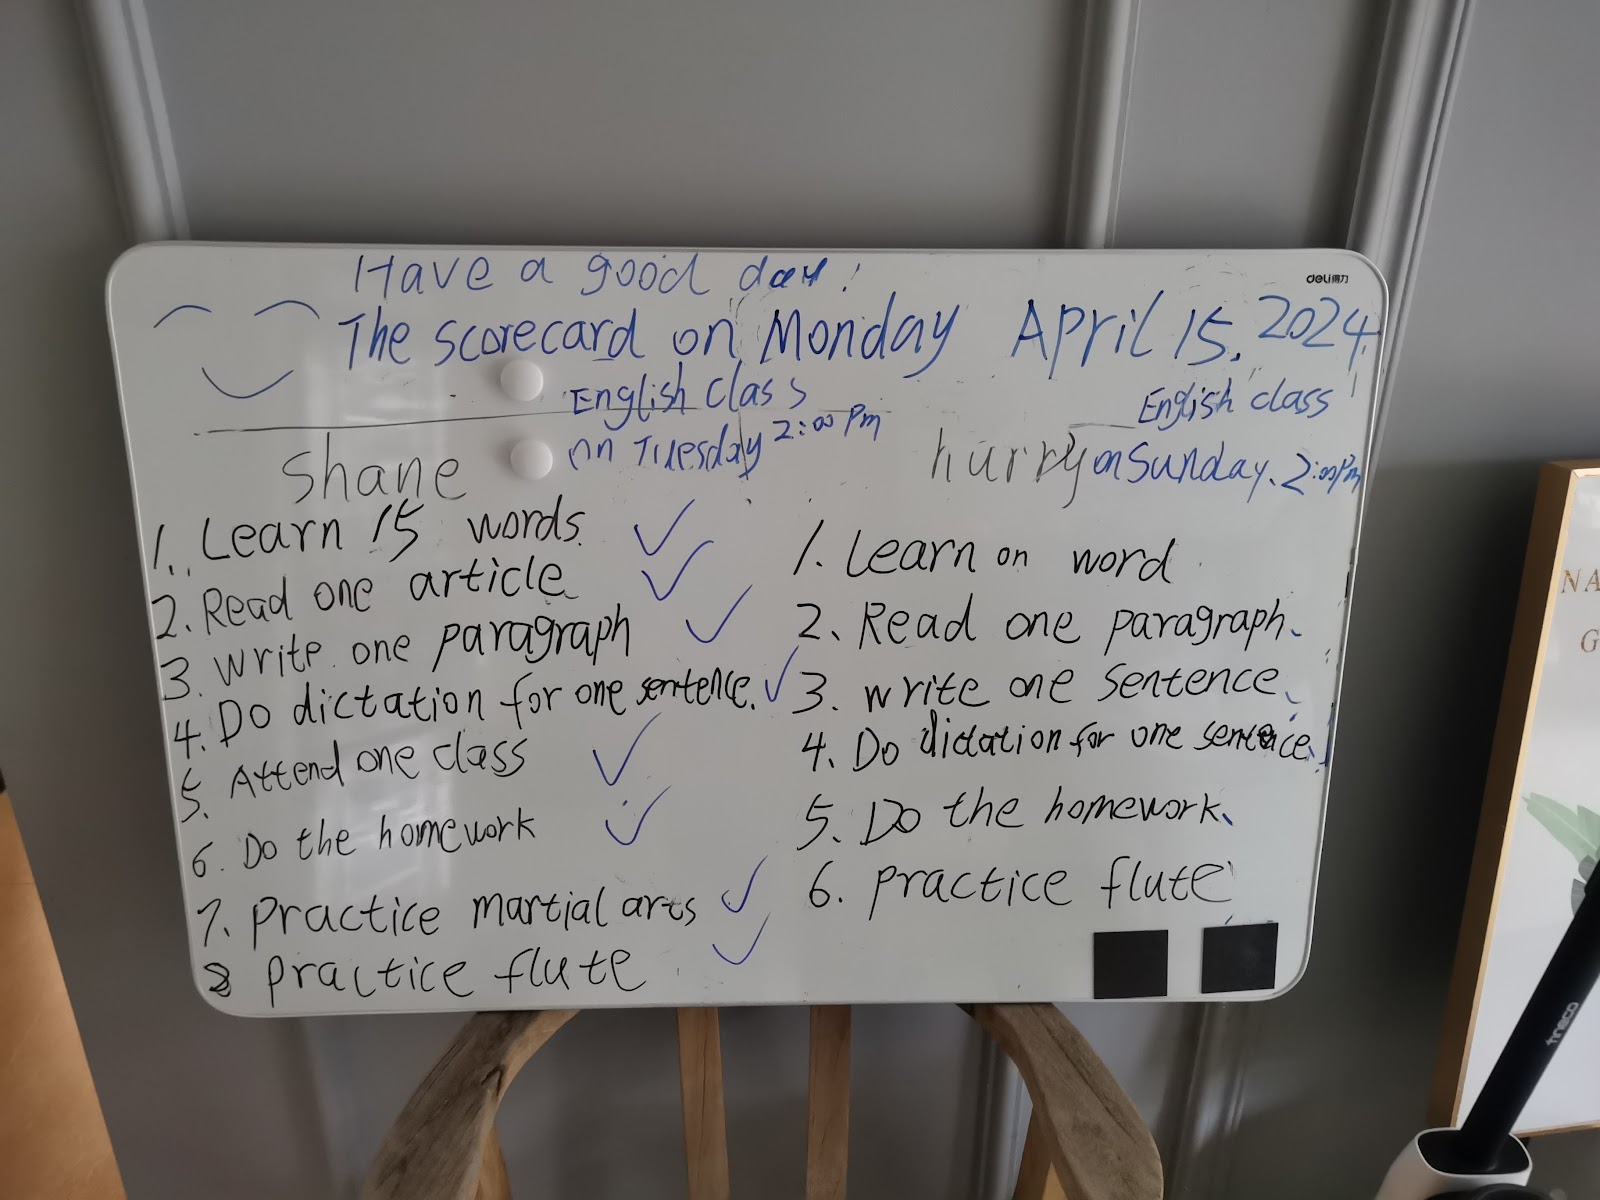 Have a good day!
deli得力
The scorecard on Monday April 15, 2024.
English class
on Tuesday 2:00 Pm
English class
on Sunday. 2:00 Pm
Shane
hurry
1. Learn 15 words.
2. Read one article
3. write one paragraph
4. Do dictation for one sentence.
5. Attend one class
6. Do the homework
7. practice martial arts
8 practice flute
1. Learn on word
2. Read one paragraph.
3. write one sentence.
4. Do dictation for one sentence.
5. Do the homework.
6. practice flute
NA
G
TINECO